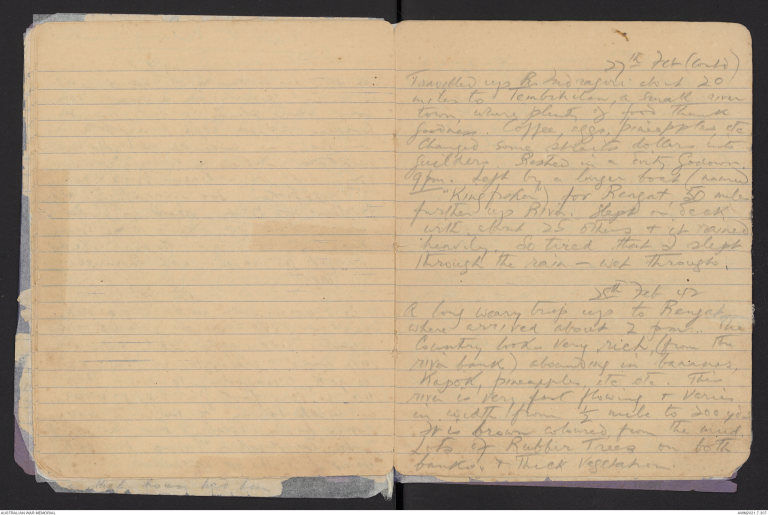 27th Feb (Contd)
Travelled up R. Indragiri about 20
miles to Tembilahan, a small river
town, where plenty of food thank
goodness. Coffee, eggs, pineapples etc
Changed some straits dollars into
guilders. Rested in a dirty Godown.
9pm. Left by a larger boat (named
"Kingfisher") for Rengat 50 miles
further up River. Slept on deck
with about 25 others & it rained
heavily. So tired that I slept
through the rain – wet through.
28th Feb 42
A long weary trip up to Rengat
where arrived about 2 pm. The
Country looks very rich (from the
river bank) abounding in bananas,
Kapok, pineapples, etc etc. This
river is very fast flowing & varies
in width from ½ mile to 200 yds
It is brown coloured from the mud.
Lots of Rubber Trees on both
banks, & thick vegetation.
that have been
AUSTRALIAN WAR MEMORIAL